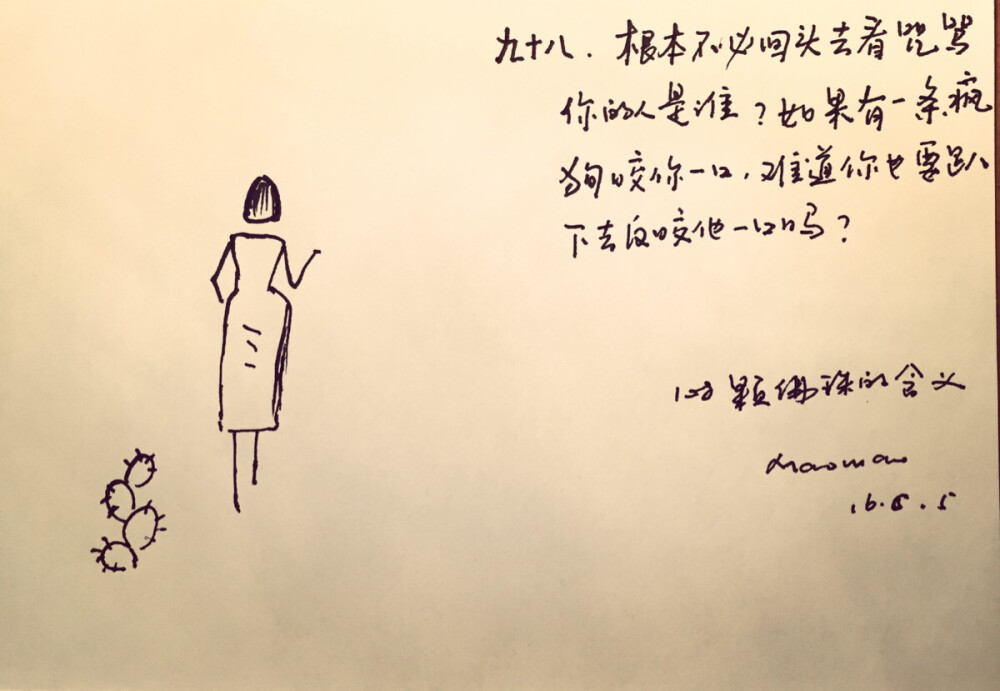 九十八．根本不必回头去看咒骂
你的人是谁？如果有一条疯
狗咬你一口，难道你也要趴
下去反咬他一口吗？
108颗佛珠的含义
maomao
16.8.5